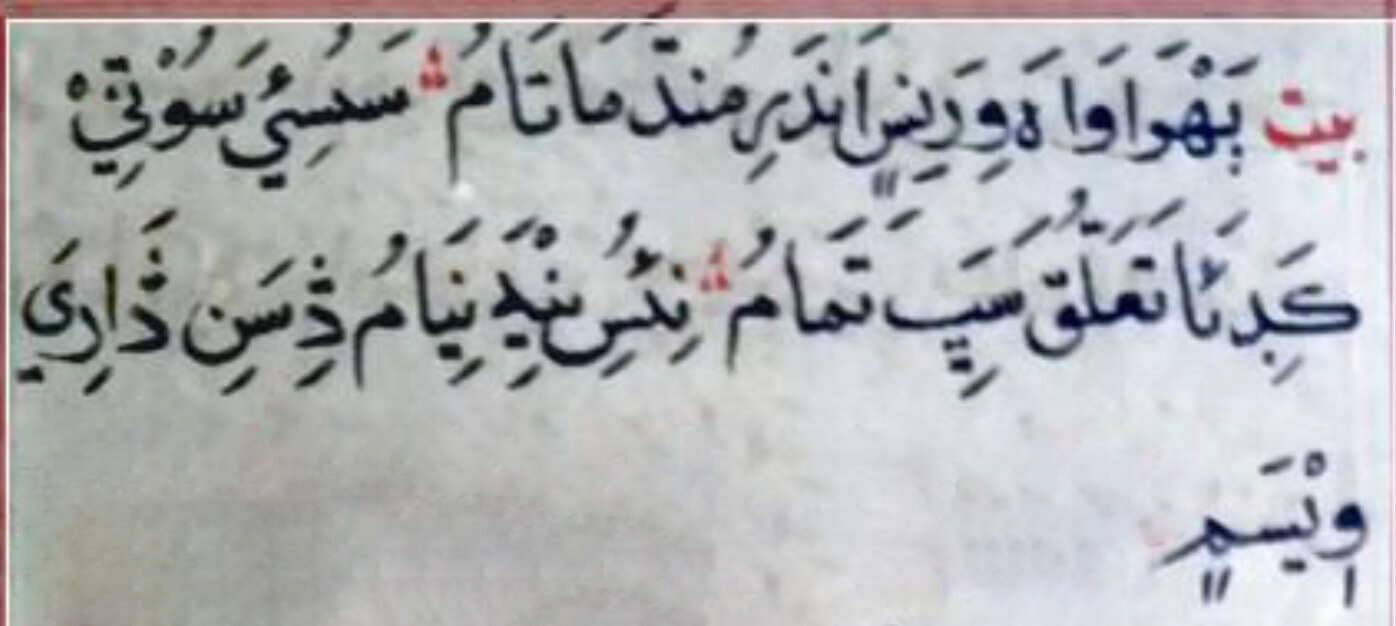 بيت بَهْرَاوَا هَ وِرِيسٖ اَندَرِ مُندَمَاتَامُ سَسُئِي سُوْتِيْ
ڪَڍِئَا تَعَلَقَ سَڀِ تَمَامُ نِئَسِ نيْهِ نِيَامُ ڏِسَنِ ڏَارِيَ
وِيْسَمِ